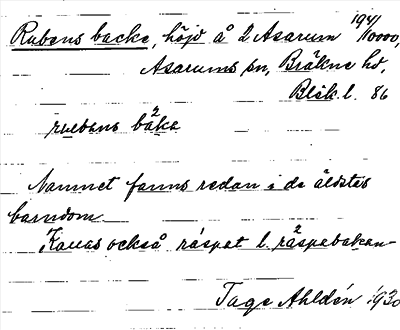 Rubens backe, höjd å 2 Asarum 1941/10000,
Asarums sn, Bräkne hd,
Blek. l. 86
rubens bàka
Namnet fanns redan i de äldstes
barndom
Kallas också råspet l. råspebakan
Tage Ahldén 1930